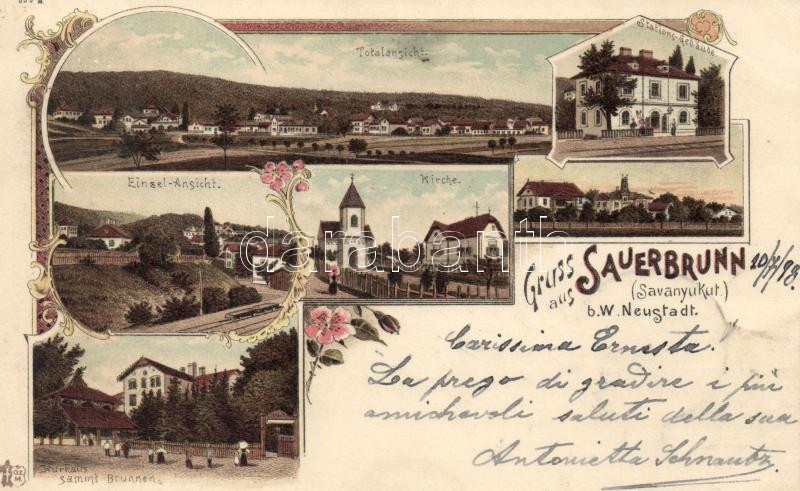 Totalansicht.
Stations-Gebäude
Einzel-Ansicht.
Kirche.
darabanth
Gruss
aus
SAUERBRUNN
(Savanyukut.)
b. W. Neustadt.
10/7/98.
Carissima Ernesta!
La prego di gradire i più
amichevoli saluti della sua
Antonietta Schnautz
Kurhaus
sammt Brunnen.